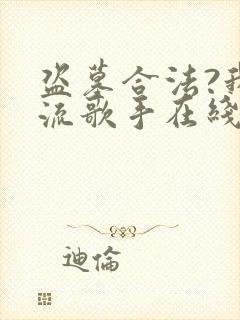 盗墓合法?我
流歌手在綫
迪倫